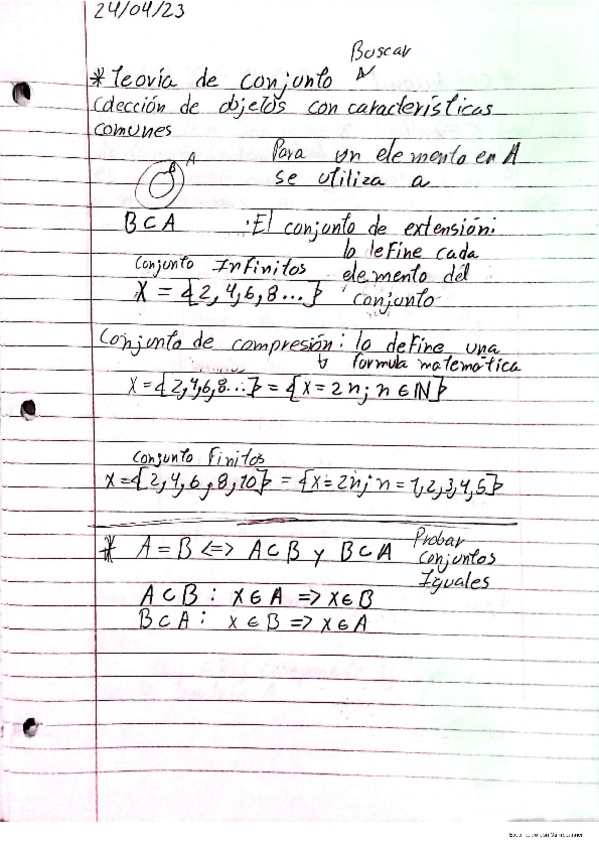 24/04/23
Buscar
* teoría de conjunto
Colección de objetos con características
comunes
B A
Para un elemento en A
se utiliza a
B ⊂ A
· El conjunto de extensión:
lo define cada
elemento del
conjunto
Conjunto Infinitos
X = {2, 4, 6, 8...}
Conjunto de compresión: lo define una
formula matemática
X = {2,4,6,8...} = {X = 2n; n ∈ IN}
Conjunto Finitos
X = {2, 4, 6, 8, 10} = {X = 2n; n = 1,2,3,4,5}
* A = B <=> A ⊂ B y B ⊂ A
Probar
Conjuntos
Iguales
A ⊂ B : X ∈ A => X ∈ B
B ⊂ A : X ∈ B => X ∈ A